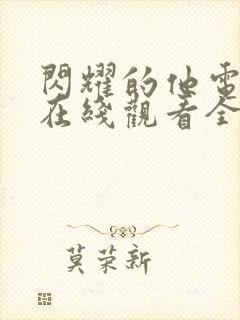 閃耀的他電
在綫觀看全
莫荣新